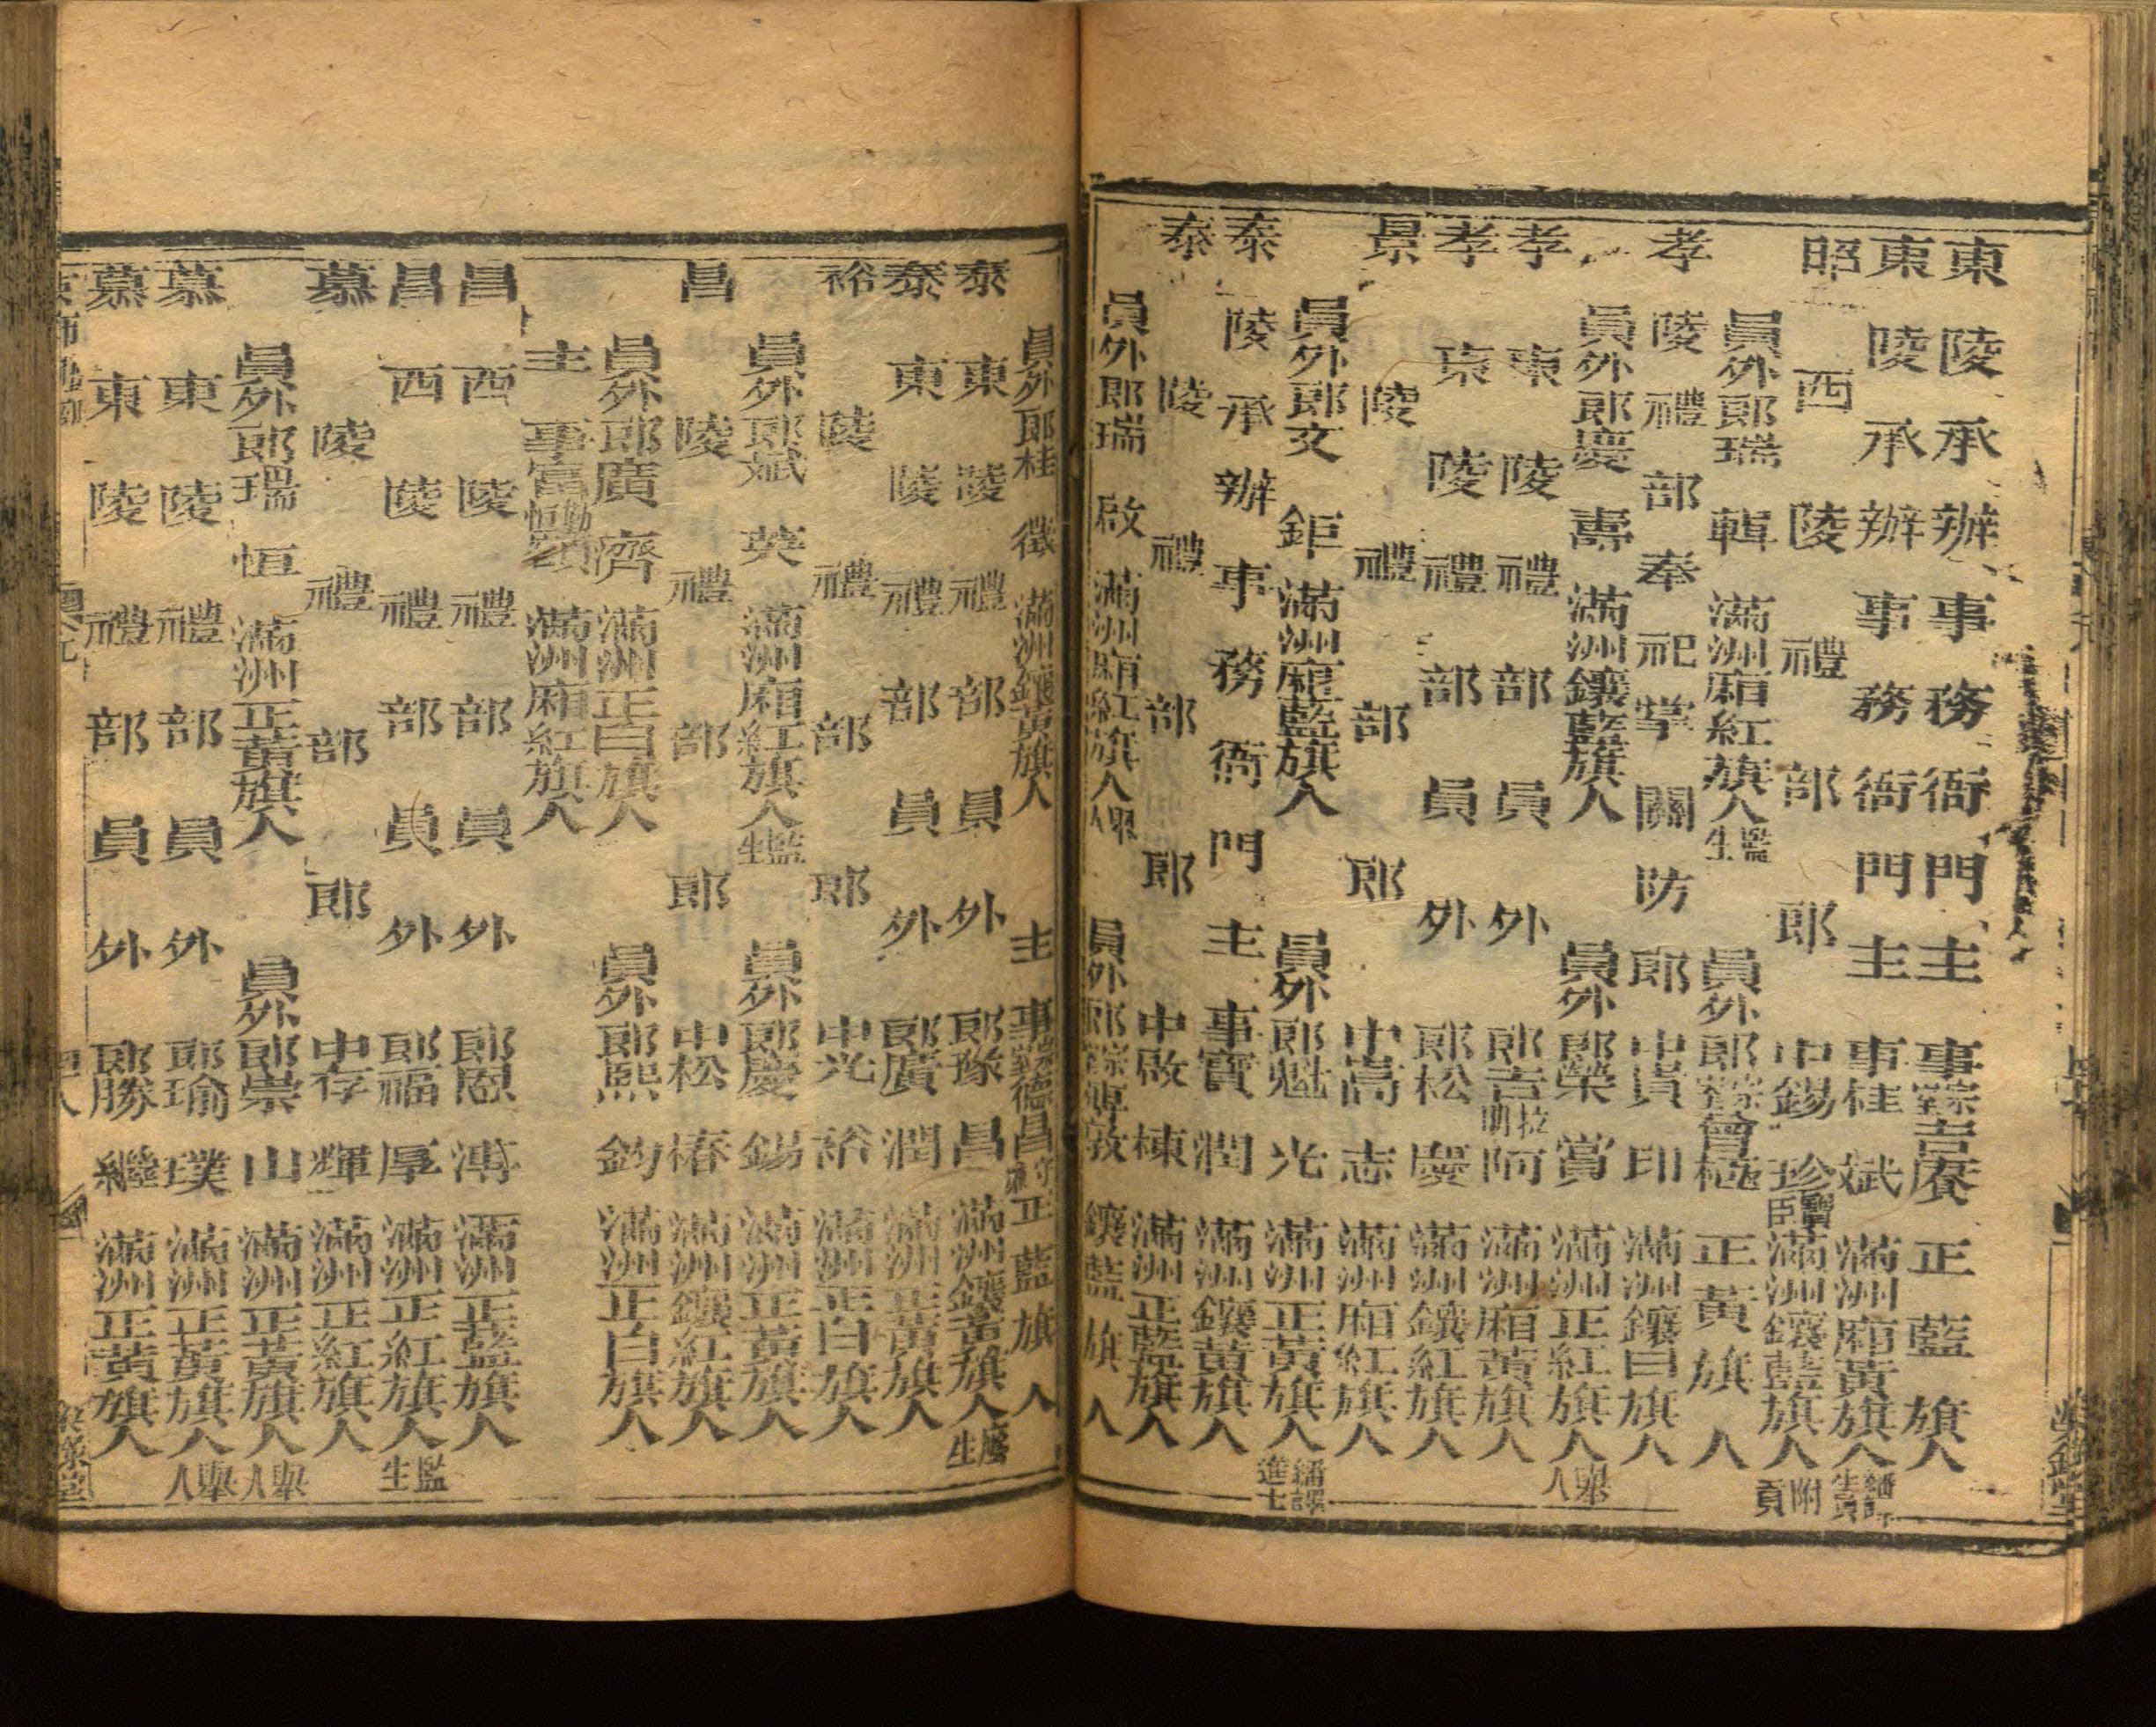 東陵承辦事務衙門主事宗室吉賡正藍旗人
東陵承辦事務衙門主事桂斌滿洲廂黃旗人繙譯生員
昭西陵禮部郎中錫珍寶臣滿洲鑲藍旗人附貢
員外郎瑞輯滿洲廂紅旗人監生 員外郎宗室會極正黃旗人
孝陵禮部奉祀掌關防郎中貴印滿洲鑲白旗人
員外郎慶壽滿洲鑲藍旗人 員外郎榮賞滿洲正紅旗人舉人
孝東陵禮部員外郎吉拉明阿滿洲廂黃旗人
孝東陵禮部員外郎松慶滿洲鑲紅旗人
景陵禮部郎中嵩志滿洲廂紅旗人
員外郎文鉅滿洲廂藍旗人 員外郎魁光滿洲正黃旗人繙譯進士
泰陵承辦事務衙門主事寶潤滿洲鑲黃旗人
泰陵禮部郎中啟棟滿洲正藍旗人
員外郎瑞啟滿洲廂紅旗人舉人 員外郎宗室溥敦鑲藍旗人
員外郎桂徵滿洲鑲黃旗人 主事宗室德昌正藍旗人
泰東陵禮部員外郎豫昌滿洲鑲黃旗人廕生
泰東陵禮部員外郎廣潤滿洲正黃旗人
裕陵禮部郎中光裕滿洲正白旗人
員外郎斌英滿洲廂紅旗人監生 員外郎慶錫滿洲正黃旗人
昌陵禮部郎中松椿滿洲鑲紅旗人
員外郎廣濟滿洲正白旗人 員外郎熙鈞滿洲正白旗人
主事富勳滿洲廂紅旗人
昌西陵禮部員外郎恩溥滿洲正藍旗人
昌西陵禮部員外郎福厚滿洲正紅旗人監生
慕陵禮部郎中存輝滿洲正紅旗人
員外郎瑞恒滿洲正黃旗人 員外郎崇山滿洲正黃旗人舉人
慕東陵禮部員外郎瑜璞滿洲正黃旗人舉人
慕東陵禮部員外郎勝繼滿洲正黃旗人
京師 禮部